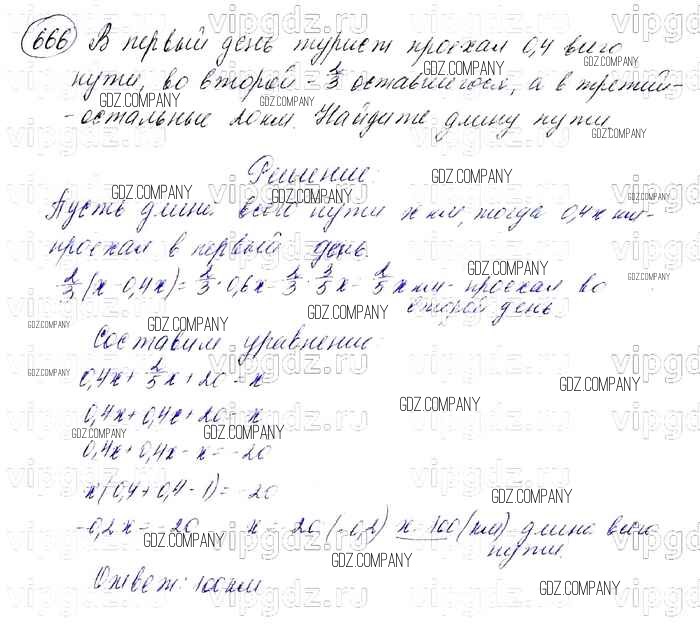 666 В первый день турист проехал 0,4 всего
пути, во второй - 2/3 оставшегося, а в третий-
- остальные 20 км. Найдите длину пути.
Решение:
Пусть длина всего пути x км, тогда 0,4x км-
проехал в первый день.
2/3 (x-0,4x)= 2/3 · 0,6x= 2/3 · 3/5x= 2/5 x км- проехал во
второй день
Составим уравнение:
0,4x+ 2/5x+20=x
0,4x+0,4x+20=x
0,4x+0,4x-x=-20
x(0,4+0,4-1)=-20
-0,2x=-20 x=-20:(-0,2) x=100(км) длина всего
пути.
Ответ: 100 км
GDZ.COMPANY
vipgdz.ru